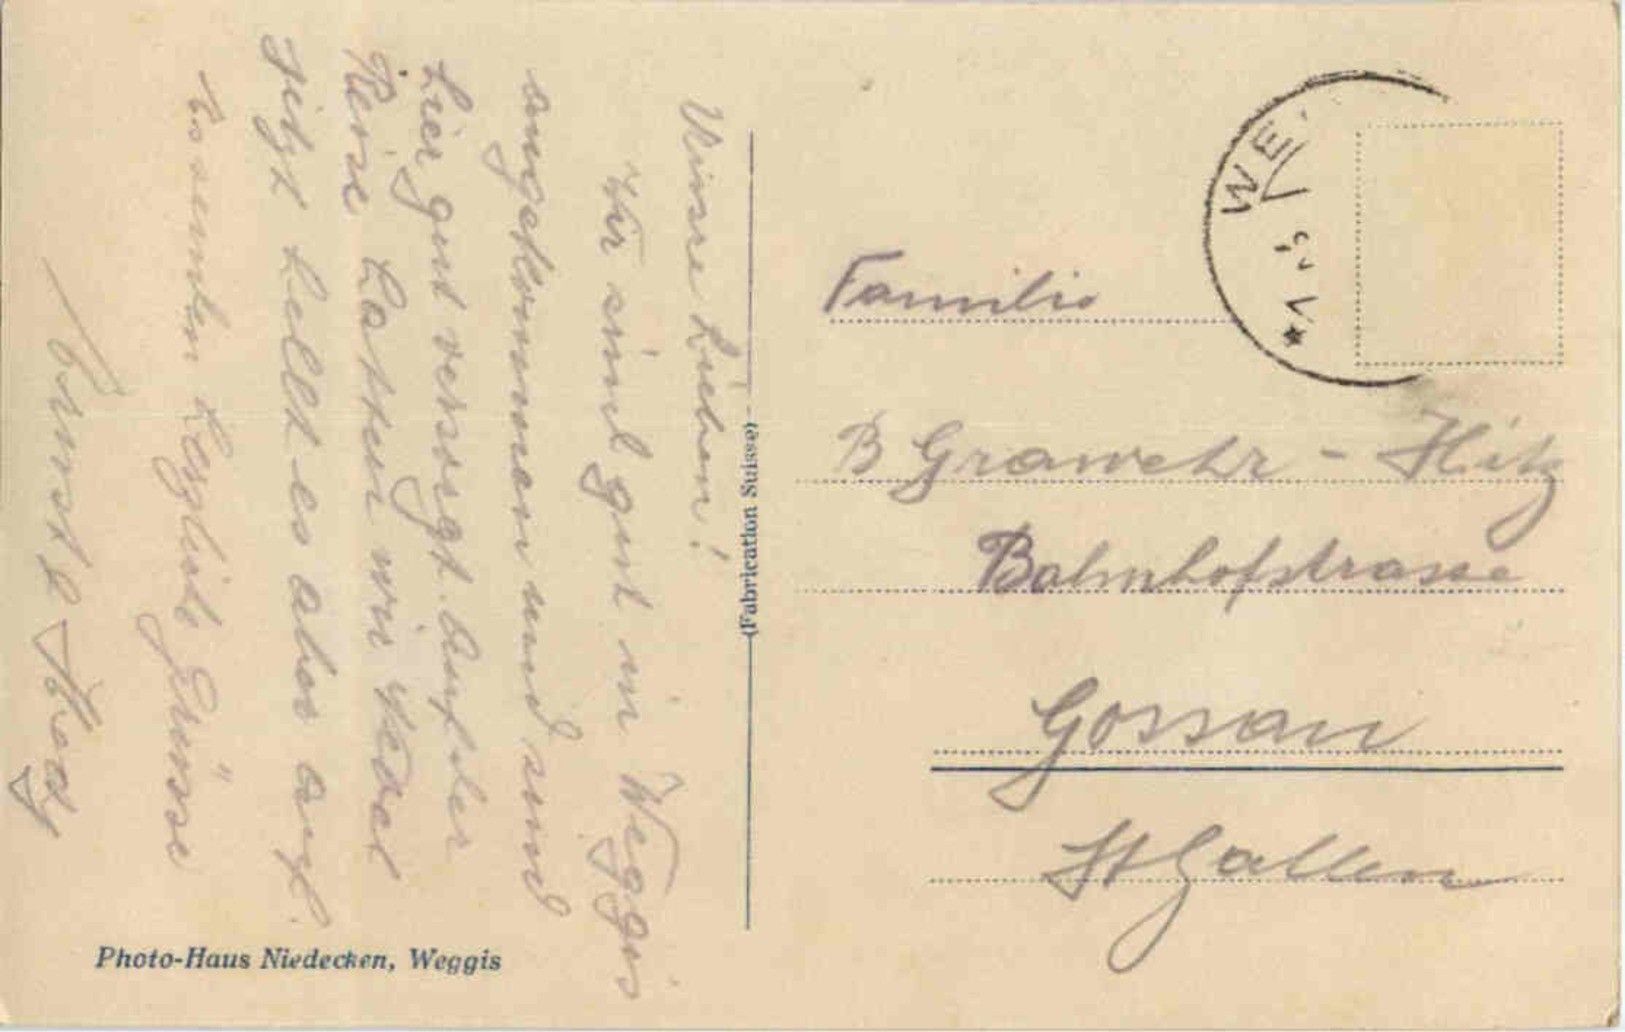 Unsre Lieben!
Wir sind gut in Weggis
angekommen und sind
hier gut versorgt. Auf der
Reise hatten wir Nebel
jetzt hellt es aber auf.
Es senden herzliche Grüsse
Ernst &
Photo-Haus Niedecken, Weggis
(Fabrication Suisse)
WE
Familie
B Grawehr - Hitz
Bahnhofstrasse
Gossau
St Gallen